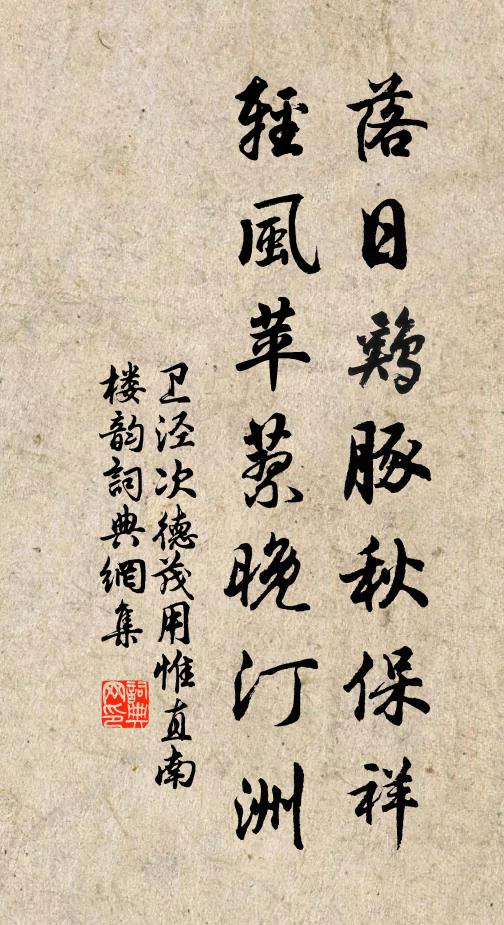 落日鷄豚秋保祥
輕風苹蔡晚汀洲
卫泾次德茂用惟直南
楼韵詞典網集
詞典网印